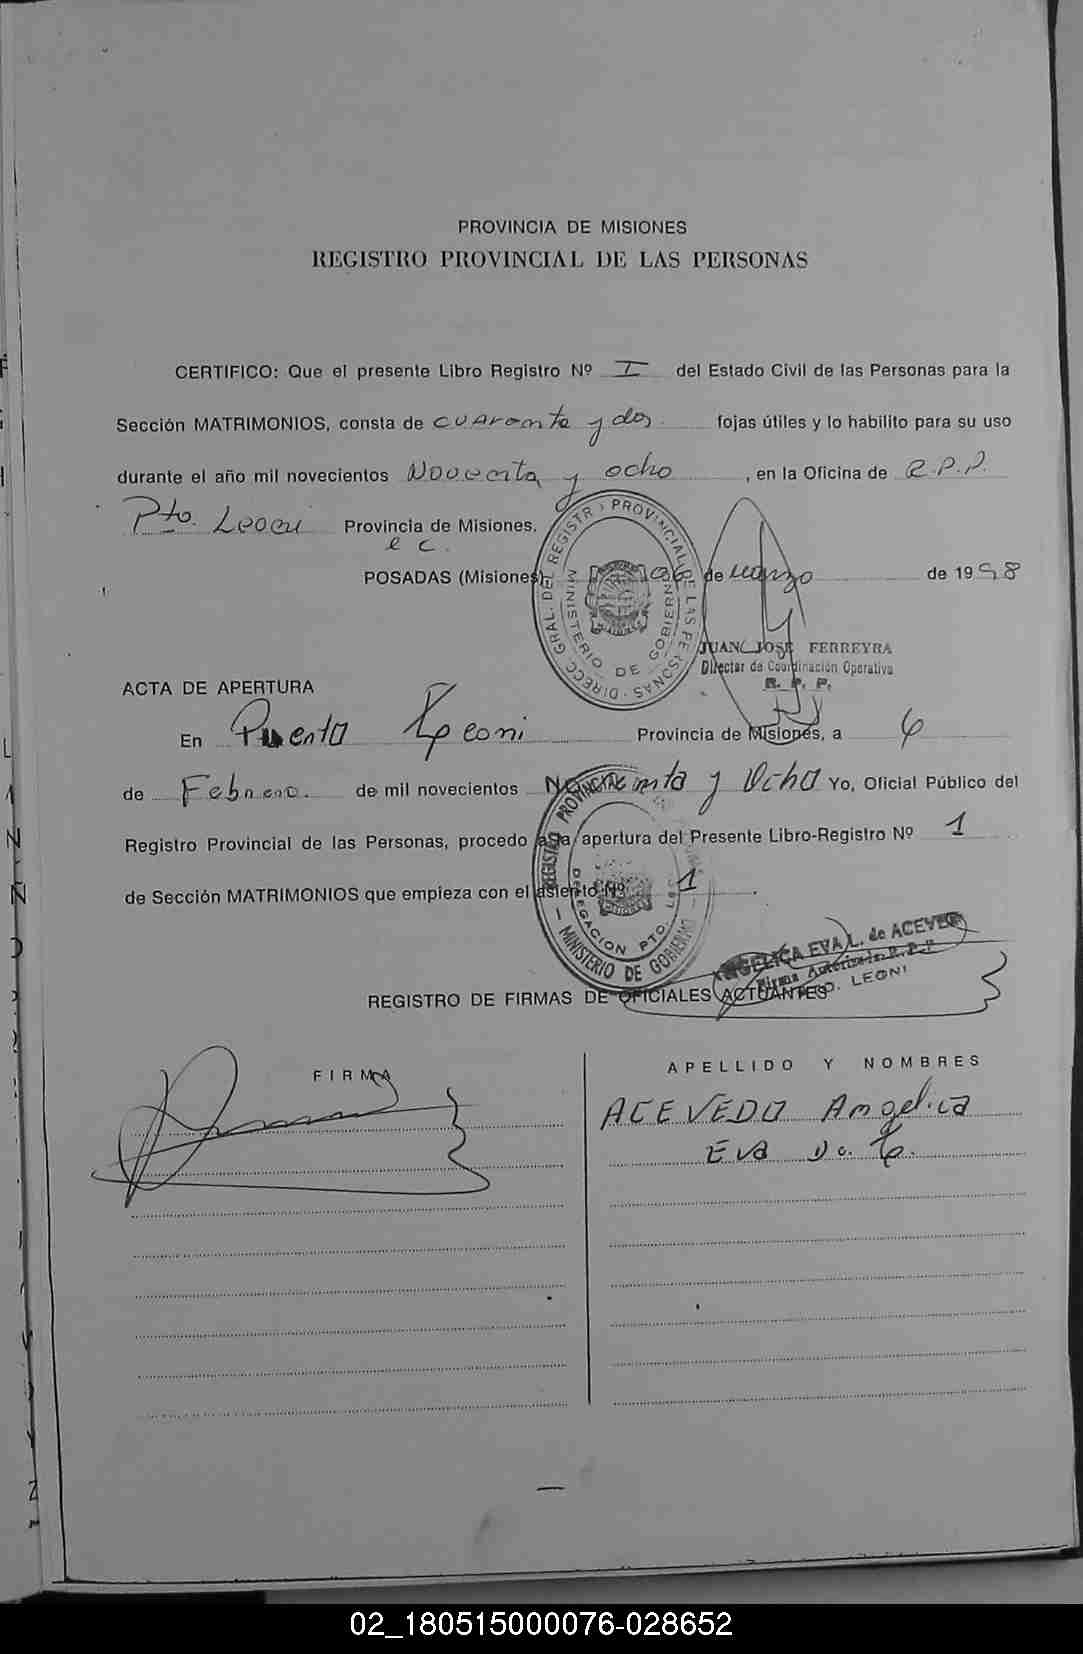 PROVINCIA DE MISIONES
REGISTRO PROVINCIAL DE LAS PERSONAS
CERTIFICO: Que el presente Libro Registro Nº I del Estado Civil de las Personas para la
Sección MATRIMONIOS, consta de cuarenta y dos fojas útiles y lo habilito para su uso
durante el año mil novecientos Noventa y ocho, en la Oficina de R.P.P.
Pto. Leoni Provincia de Misiones.
POSADAS (Misiones), 06 de marzo de 1998
DIRECC. GRAL. DEL REGISTR PROVINCIAL DE LAS PERSONAS
MINISTERIO DE GOBIERNO
JUAN JOSE FERREYRA
Director de Coordinación Operativa
R. P. P.
ACTA DE APERTURA
En Puerto Leoni Provincia de Misiones, a 6
de Febrero. de mil novecientos Noventa y Ocho Yo, Oficial Público del
Registro Provincial de las Personas, procedo a la apertura del Presente Libro-Registro Nº 1
de Sección MATRIMONIOS que empieza con el asiento Nº 1.
REGISTRO PROVINCIAL
DELEGACION PTO.
MINISTERIO DE GOBIERNO
ANGELICA EVA L. de ACEVEDO
Firma Autorizada R.P.P.
PTO. LEONI
REGISTRO DE FIRMAS DE OFICIALES ACTUANTES
FIRMA
APELLIDO Y NOMBRES
ACEVEDO Angelica
Eva
02_180515000076-028652